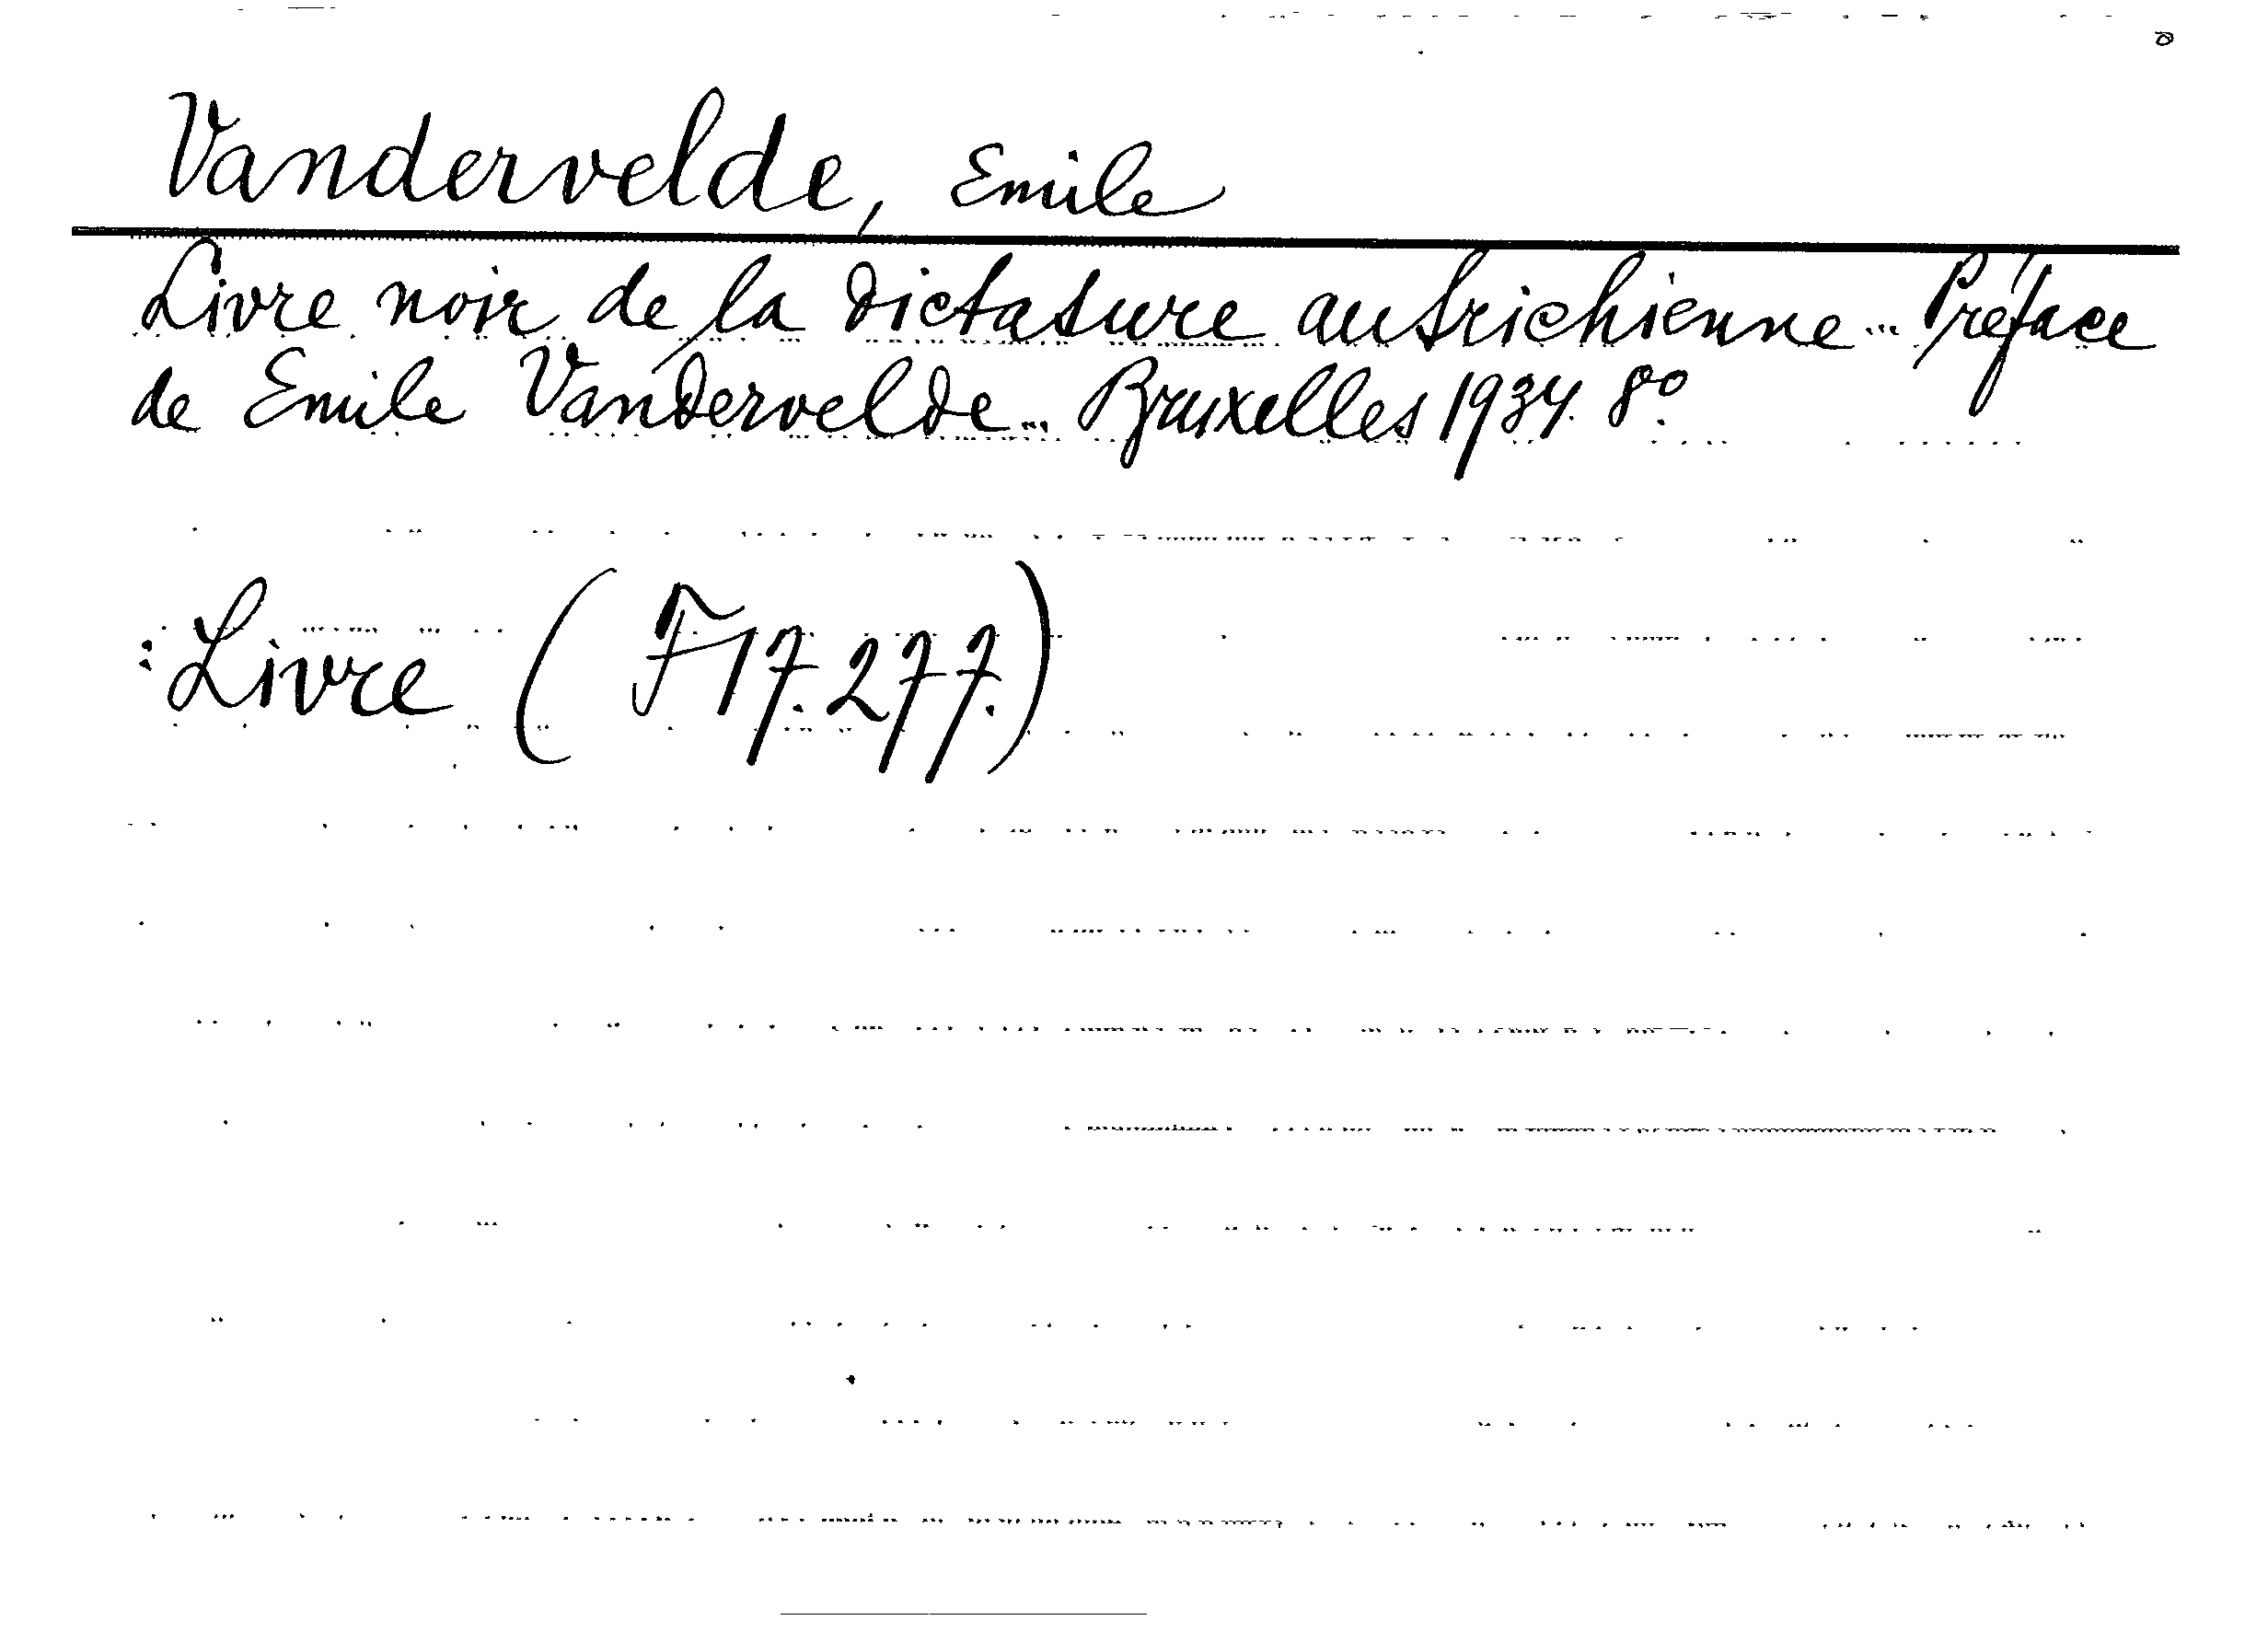 Vandervelde, Emile
Livre noir de la dictature autrichienne... Préface
de Emile Vandervelde... Bruxelles 1934. 8º.
: Livre (F 17.277.)